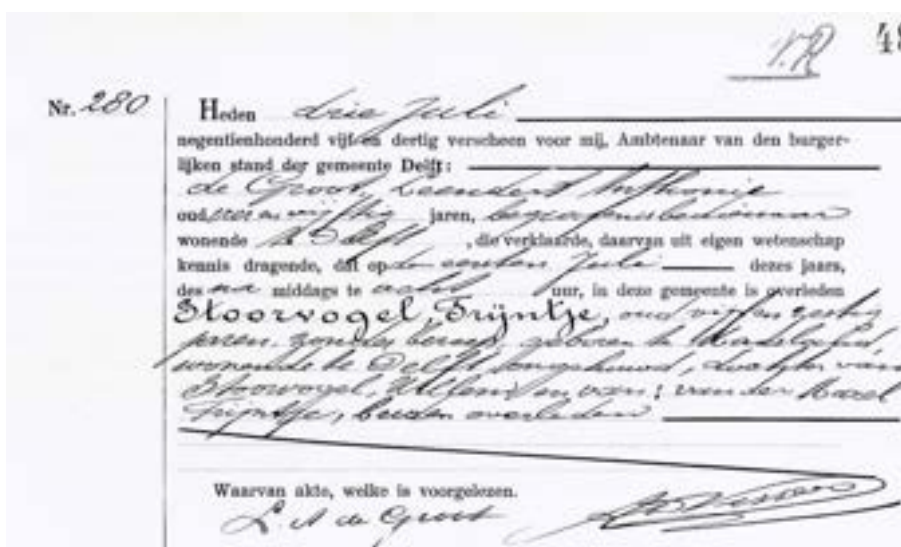 V.R. 48
Nr. 280
Heden drie Juli
negentienhonderd vijf en dertig verscheen voor mij, Ambtenaar van den burger-
lijken stand der gemeente Delft:
de Groot, Leendert Anthonie
oud vijftig jaren, begrafenisbedienaar
wonende te Delft, die verklaarde, daarvan uit eigen wetenschap
kennis dragende, dat op den eersten Juli dezes jaars,
des na middags te acht uur, in deze gemeente is overleden
Stoorvogel, Trijntje, oud vijf en zestig
jaren, zonder beroep, geboren te Maasland
wonende te Delft, ongehuwd, dochter van
Stoorvogel, Willem en van: van der Marel
Trijntje, beiden overleden
Waarvan akte, welke is voorgelezen.
L A de Groot